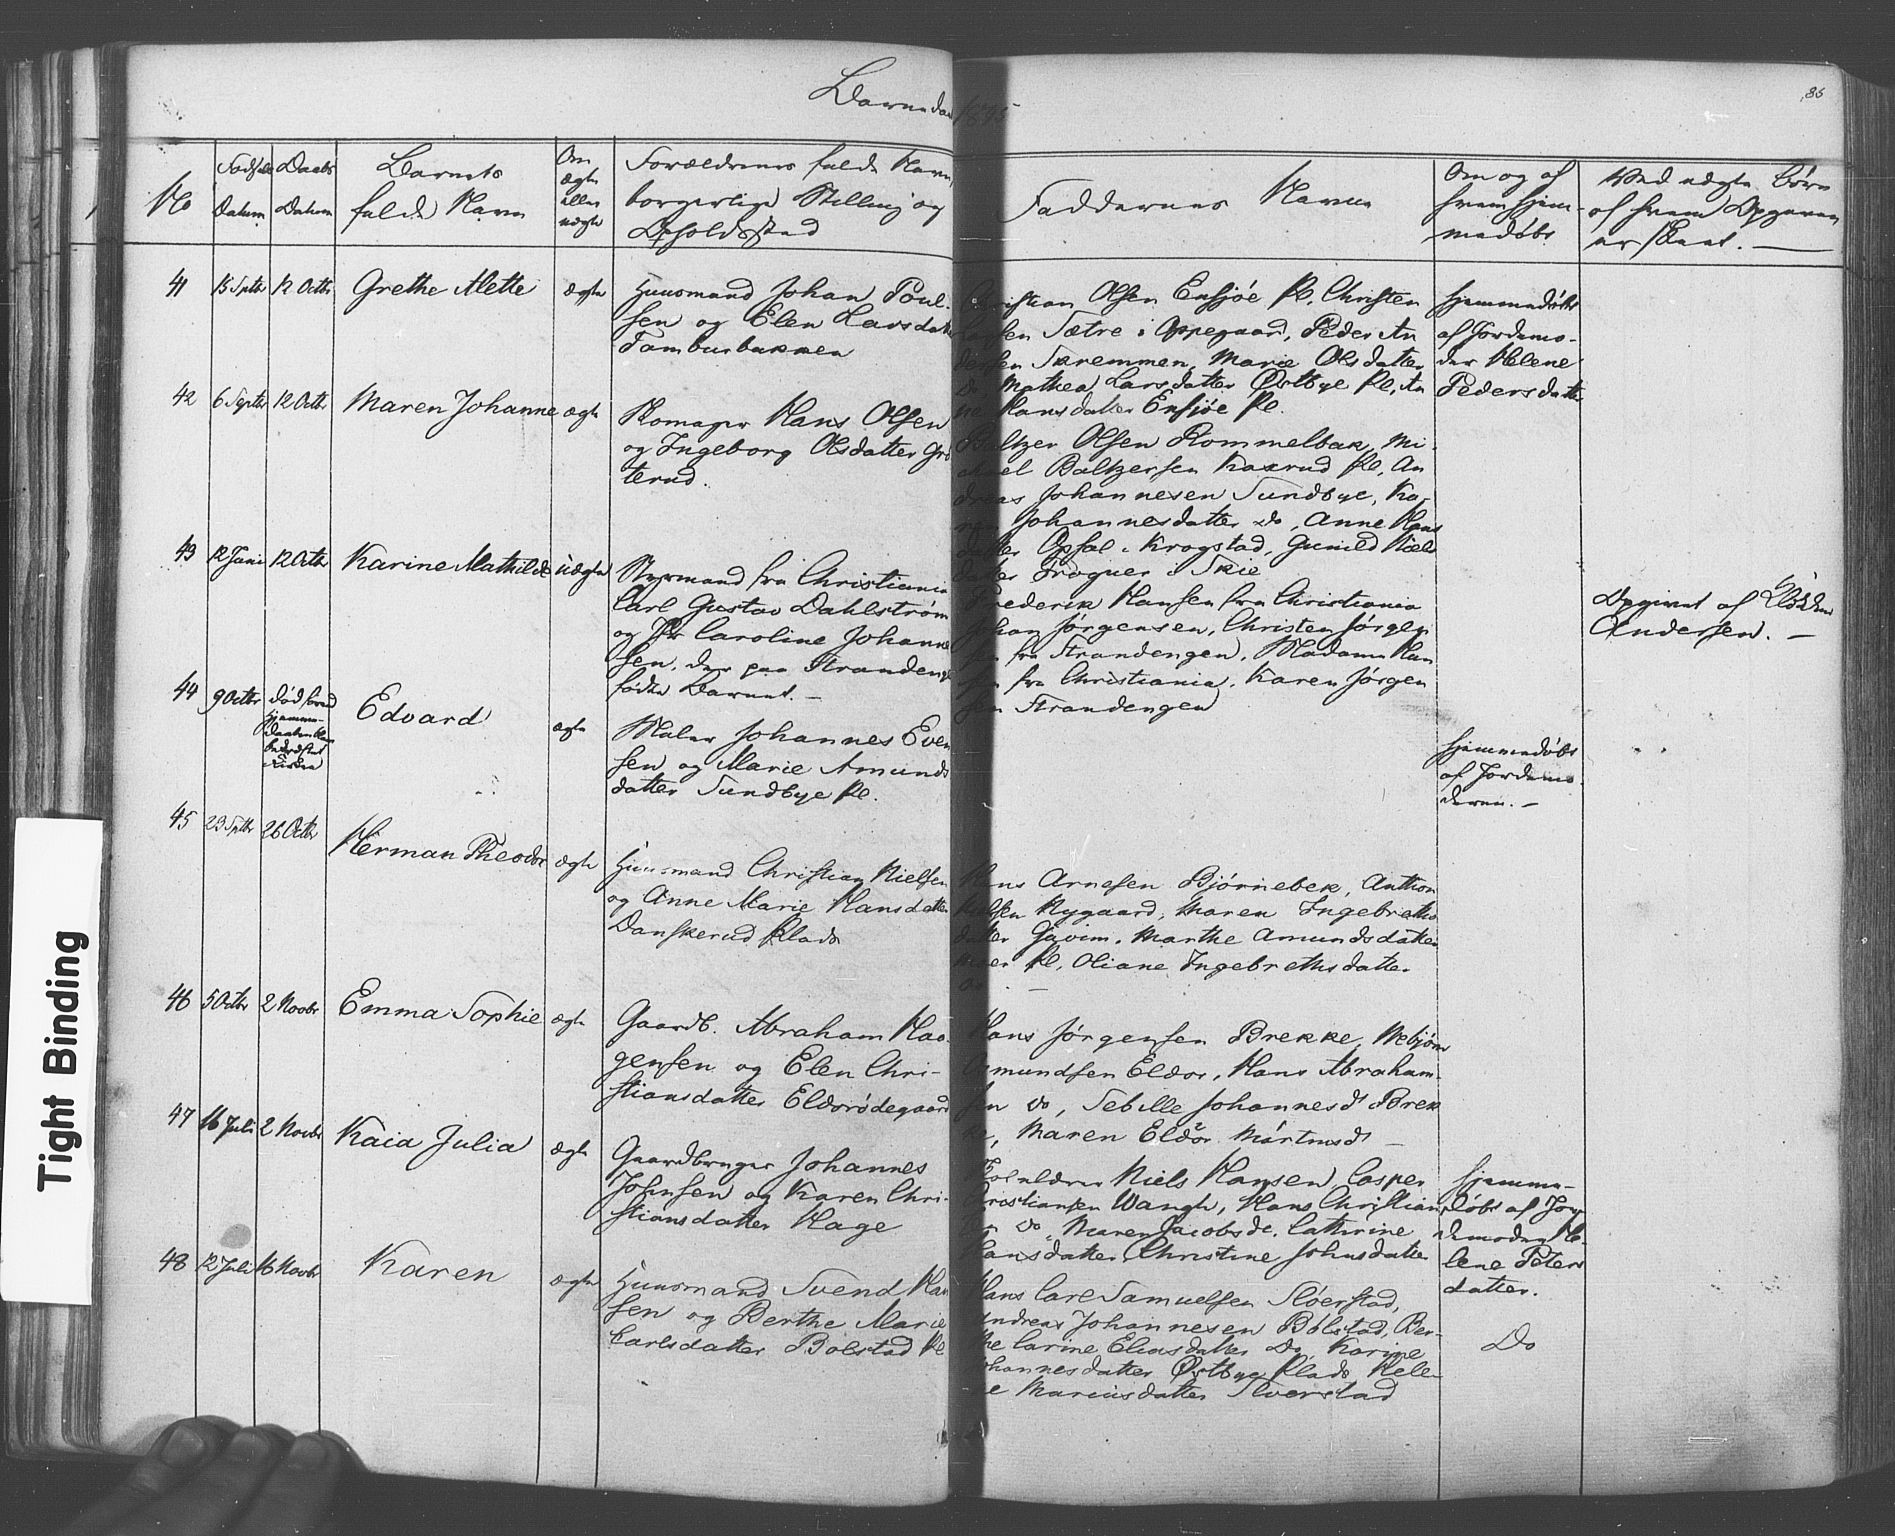 Barnedaab 1835
86
No
Fødsels Datum
Daabs Datum
Barnets
fulde Navn
Om
ægte
eller
uægte
Forældrenes fulde Navn,
borgerlige Stilling og
Opholdsstad
Faddernes Navne
Om og af
hvem hjem-
medøbt
Ved uægte Børn
af hvem Opgaven
er skeet. —
41
15 Septbr
12 Octbr
Grethe Mette
ægte
Huusmand Johan Poul-
sen og Elen Larsdatter
Tambursbakken
Christian Olsen Ensjøe Pl. Christen
Larsen Sætre i Oppegaard, Peder An
dersen Skremmen, Marie Olsdatter
Do, Mathea Larsdatter Østbye Pl, An
ne Hansdatter Ensjøe Pl.
hjemmedøbt
af Jordemo-
der Helene
Pedersdatter
42
6 Septbr
12 Octbr
Maren Johanne
ægte
Skomager Hans Olsen
og Ingeborg Olsdatter Gro
terud.
Baltzer Olsen Rommelbak, Mi-
chael Baltzersen Kaxrud Pl, An
dreas Johannesen Sundbye, Ka-
ren Johannesdatter Do, Anne Hans
datter Opsal i Krogstad, Gunild Niels
datter Frogner i Skie
43
12 Juni
12 Octbr
Karine Mathilde
uægte
Styrmand fra Christiania
Carl Gustav Dahlstrøm
og Caroline Johanne
sen, der paa Strandengen
fødte Barnet. —
Frederik Hansen fra Christiania
Johan Jørgensen, Christen Jørgen
sen fra Strandengen, Madame Han
sen fra Christiania, Karen Jørgen
sen Strandengen
Opgivet af
Andersen. —
44
9 Octbr
død
hjemme-
Kirken
Edvard
ægte
Maler Johannes Even
sen og Marie Amunds
datter Sundbye Pl.
hjemmedøbt
af Jordemo-
deren. —
45
23 Septbr
26 Octbr
Herman Theodor
ægte
Huusmand Christian Nielsen
og Anne Marie Hansdatter
Danskerud Plads
Hans Arnesen Bjørnebek, Anthon
Nielsen Nygaard, Maren Ingebreths
datter Gjevim, Marthe Amundsdatter
Moer Pl, Oliane Ingebrethsdatter
Do —
46
5 Octbr
2 Novbr
Emma Sophie
ægte
Gaardb. Abraham Haa-
gensen og Elen Chri-
stiansdatter Eldorødegaard
Hans Jørgensen Brekke, Webjørn
Amundsen Eldor, Hans Abraham-
sen Do, Sebille Johannesd Brek
ke, Maren Eldor Mortensd —
47
16 Juli
2 Novbr
Kaia Julia
ægte
Gaardbruger Johannes
Johnsen og Karen Chri-
stiansdatter Hage
Niels Hansen, Casper
Christiansen Wangh, Hans Christian
sen Do, Maren Jacobsd. Cathrine
Hansdatter, Christine Johnsdatter
hjemme-
døbt af Jor
demoder He-
lene Peters
datter.
48
12 Juli
16 Novbr
Karen
ægte
Huusmand Svend Han
sen og Berthe Marie
Carlsdatter Bolstad Pl
Hans Carl Samuelsen Sloerstad,
Andreas Johannesen Bolstad, Ber-
the Carine Eliasdatter Do, Karine
Johannesdatter Østbye Plads, Hele-
ne Mariusdatter Sloerstad
Do
Tight Binding